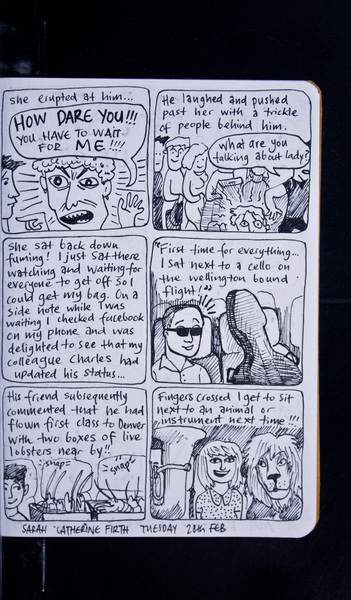 she erupted at him...
HOW DARE YOU!!!
YOU HAVE TO WAIT
FOR ME !!!!
He laughed and pushed
past her with a trickle
of people behind him.
what are you
talking about lady?
She sat back down
fuming! I just sat there
watching and waiting for
everyone to get off so I
could get my bag. On a
side note while I was
waiting I checked facebook
on my phone and was
delighted to see that my
colleague Charles had
updated his status...
"First time for everything...
I sat next to a cello on
the wellington bound
flight!"
His friend subsequently
commented that he had
flown first class to Denver
with two boxes of live
lobsters near by!!
snap
snap
Fingers crossed I get to sit
next to an animal or
instrument next time!!!
SARAH CATHERINE FIRTH TUESDAY 28th FEB